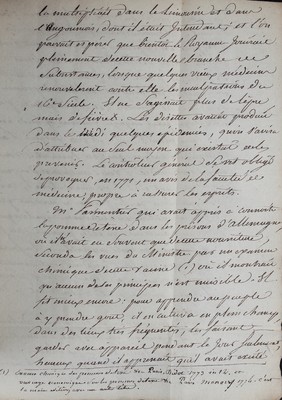 se multipliait dans le Limousin et dans
l'Angoumois, dont il était Intendant; et l'on
pouvait espérer que bientôt le Royaume jouirait
pleinement de cette nouvelle branche de
subsistances, lorsque quelques vieux médecins
renouvelèrent contre elle les inculpations du
16e Siècle. Il ne s'agissait plus de lèpre
mais de fièvres. Les disettes avaient produit
dans le Midi quelques épidémies, qu'on s'avisa
d'attribuer au seul moyen qui existait de les
prévenir. Le controleur général se vit obligé
de provoquer, en 1771, un avis de la faculté de
médecine, propre à rassurer les esprits.
Mr. Parmentier qui avait appris à connaitre
la pomme de terre dans les prisons d'Allemagne
où il avait eu souvent que cette nourriture,
seconda les vues du Ministre par un examen
chimique de cette racine (1) où il montrait
qu'aucun de ses principes n'est nuisible. Il
fit mieux encore: pour apprendre au peuple
à y prendre goût, il en cultiva en plein champ
dans des lieux très fréquentés, les faisant
garder avec appareil pendant le jour seulement,
heureux quand il apprenait qu'il avait excité
(1) Examen chimique des pommes de terre. Paris, 1773 in 12.
Paris 1776.